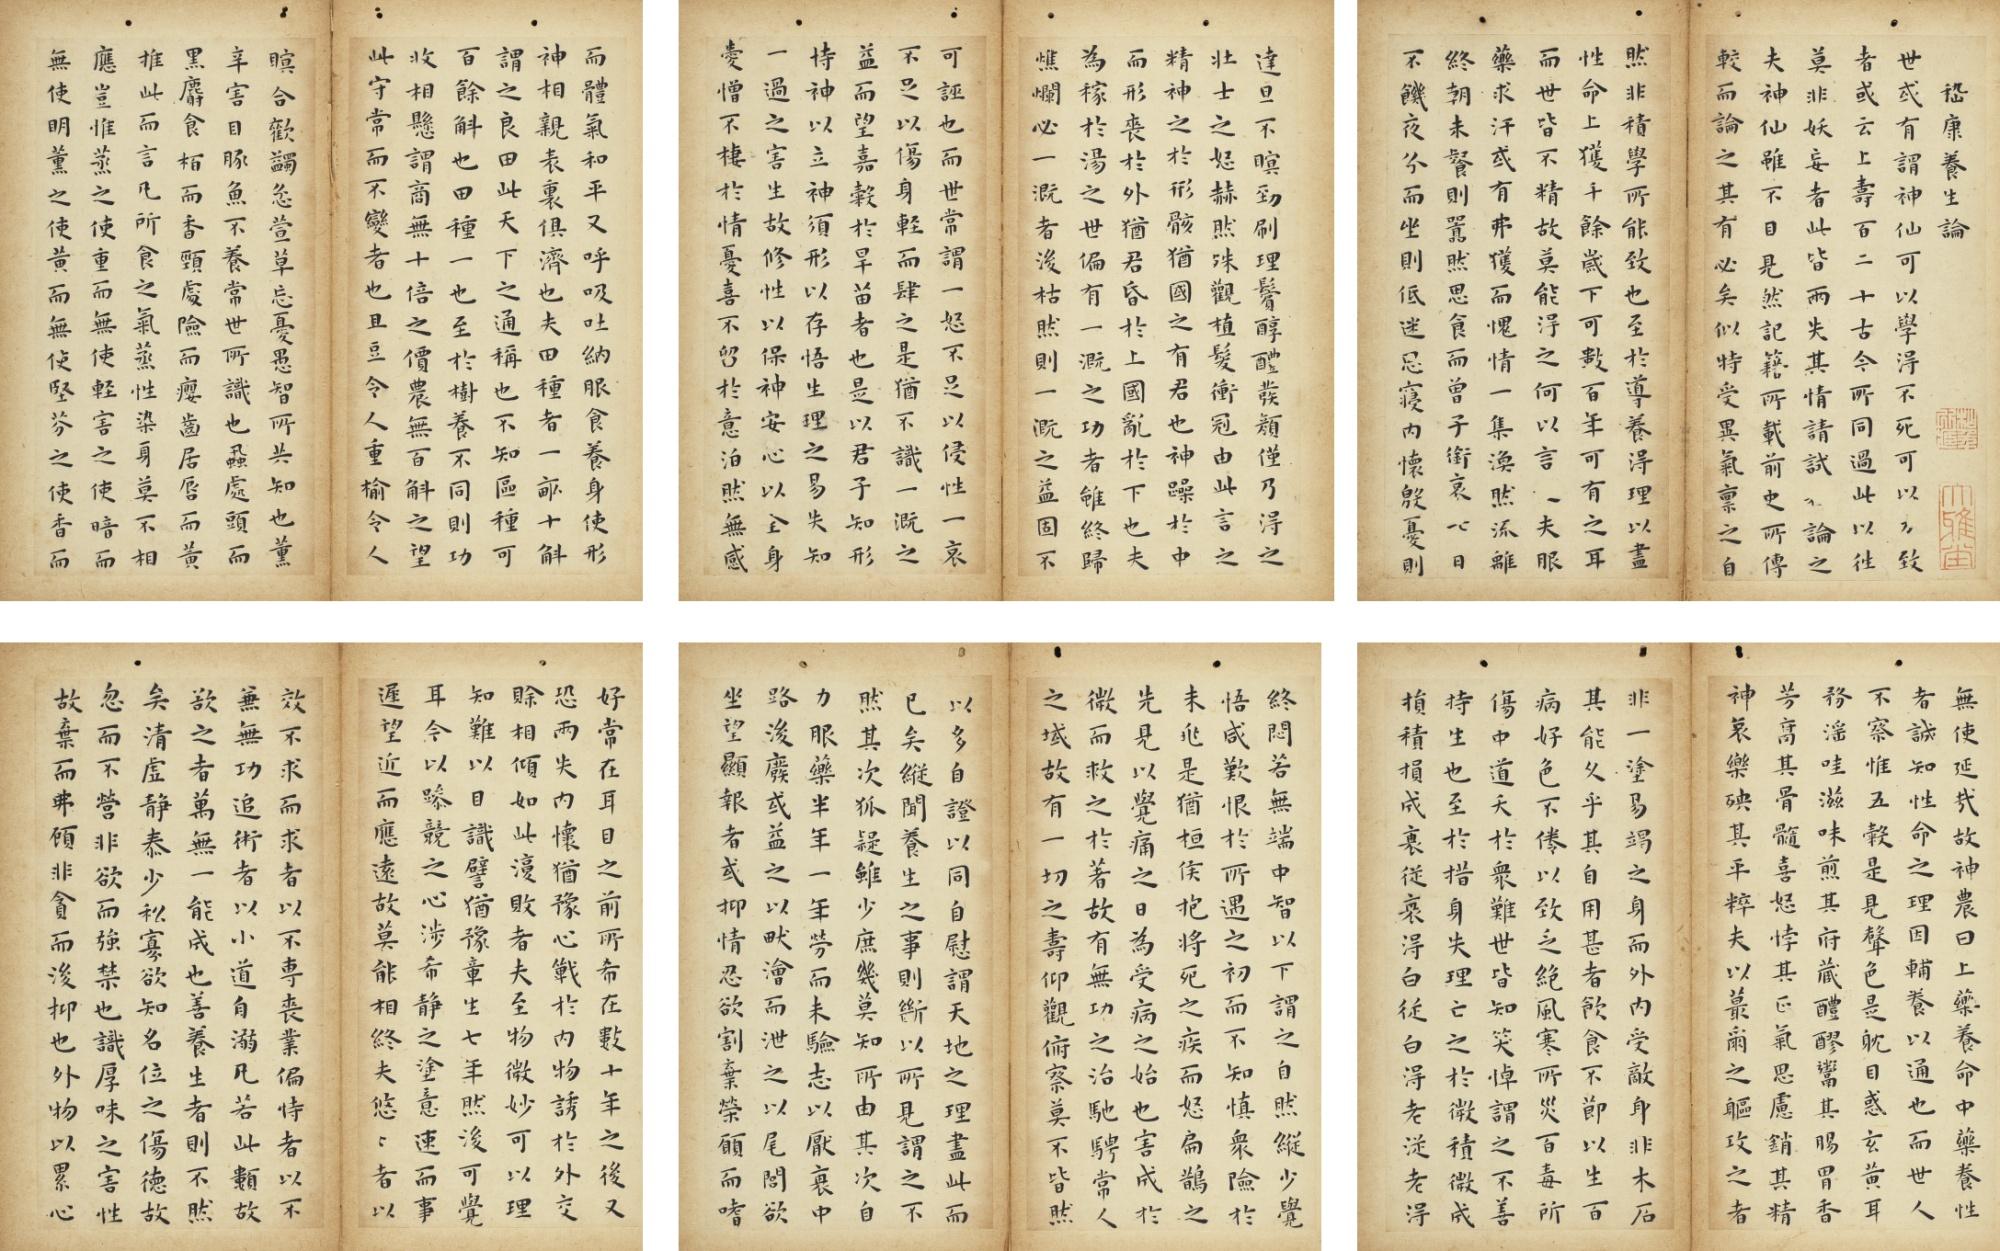 嵇康養生論
世或有謂神仙可以學得不死可以力致
者或云上壽百二十古今所同過此以往
莫非妖妄者此皆兩失其情請試論之
夫神仙雖不目見然記籍所載前史所傳
較而論之其有必矣似特受異氣稟之自
然非積學所能致也至於導養得理以盡
性命上獲千餘歲下可數百年可有之耳
而世皆不精故莫能得之何以言夫服
藥求汗或有弗獲而愧情一集渙然流離
終朝未餐則囂然思食而曾子銜哀七日
不饑夜分而坐則低迷思寢內懷殷憂則
達旦不瞑勁刷理鬢醇醴發顏僅乃得之
壯士之怒赫然殊觀植髮衝冠由此言之
精神之於形骸猶國之有君也神躁於中
而形喪於外猶君昏於上國亂於下也夫
為稼於湯之世偏有一溉之功者雖終歸
燋爛必一溉者後枯然則一溉之益固不
可誣也而世常謂一怒不足以侵性一哀
不足以傷身輕而肆之是猶不識一溉之
益而望嘉穀於旱苗者也是以君子知形
恃神以立神須形以存悟生理之易失知
一過之害生故修性以保神安心以全身
愛憎不棲於情憂喜不留於意泊然無感
而體氣和平又呼吸吐納服食養身使形
神相親表裏俱濟也夫田種者一畝十斛
謂之良田此天下之通稱也不知區種可
百餘斛也田種一也至於樹養不同則功
收相懸謂商無十倍之價農無百斛之望
此守常而不變者也且豆令人重榆令人
瞑合歡蠲忿萱草忘憂愚智所共知也薰
辛害目豚魚不養常世所識也蝨處頭而
黑麝食柏而香頸處險而癭齒居唇而黃
推此而言凡所食之氣蒸性染身莫不相
應豈惟蒸之使重而無使輕害之使暗而
無使明薰之使黃而無使堅芬之使香而
無使延哉故神農曰上藥養命中藥養性
者誠知性命之理因輔養以通也而世人
不察惟五穀是見聲色是耽目惑玄黃耳
務淫哇滋味煎其府藏醴醪鬻其腸胃香
芳腐其骨髓喜怒悖其正氣思慮銷其精
神哀樂殃其平粹夫以蕞爾之軀攻之者
非一塗易竭之身而外內受敵身非木石
其能久乎其自用甚者飲食不節以生百
病好色不倦以致乏絕風寒所災百毒所
傷中道夭於衆難世皆知笑悼謂之不善
持生也至於措身失理亡之於微積微成
損積損成衰從衰得白從白得老從老得
終悶若無端中智以下謂之自然縱少覺
悟咸歎恨於所遇之初而不知慎衆險於
未兆是猶桓侯抱將死之疾而怒扁鵲之
先見以覺痛之日為受病之始也害成於
微而救之於著故有無功之治馳騁常人
之域故有一切之壽仰觀俯察莫不皆然
以多自證以同自慰謂天地之理盡此而
已矣縱聞養生之事則斷以所見謂之不
然其次狐疑雖少庶幾莫知所由其次自
力服藥半年一年勞而未驗志以厭衰中
路後廢或益之以畎澮而泄之以尾閭欲
坐望顯報者或抑情忍欲割棄榮願而嗜
好常在耳目之前所希在數十年之後又
恐兩失內懷猶豫心戰於內物誘於外交
賒相傾如此復敗者夫至物微妙可以理
知難以目識譬猶豫章生七年然後可覺
耳今以躁競之心涉希靜之塗意速而事
遲望近而應遠故莫能相終夫悠〻者以
效不求而求者以不專喪業偏恃者以不
兼無功追術者以小道自溺凡若此類故
欲之者萬無一能成也善養生者則不然
矣清虛靜泰少私寡欲知名位之傷德故
忽而不營非欲而強禁也識厚味之害性
故棄而弗顧非貪而後抑也外物以累心